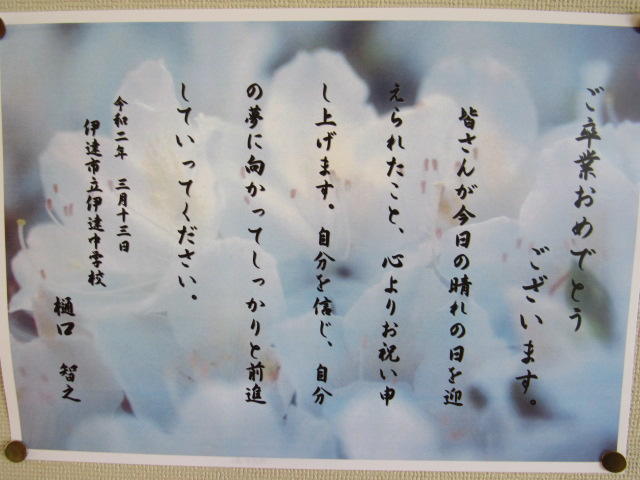 ご卒業おめでとう
ございます。
皆さんが今日の晴れの日を迎
えられたこと、心よりお祝い申
し上げます。自分を信じ、自分
の夢に向かってしっかりと前進
していってください。
令和二年　三月十三日
伊達市立伊達中学校
樋口　智之